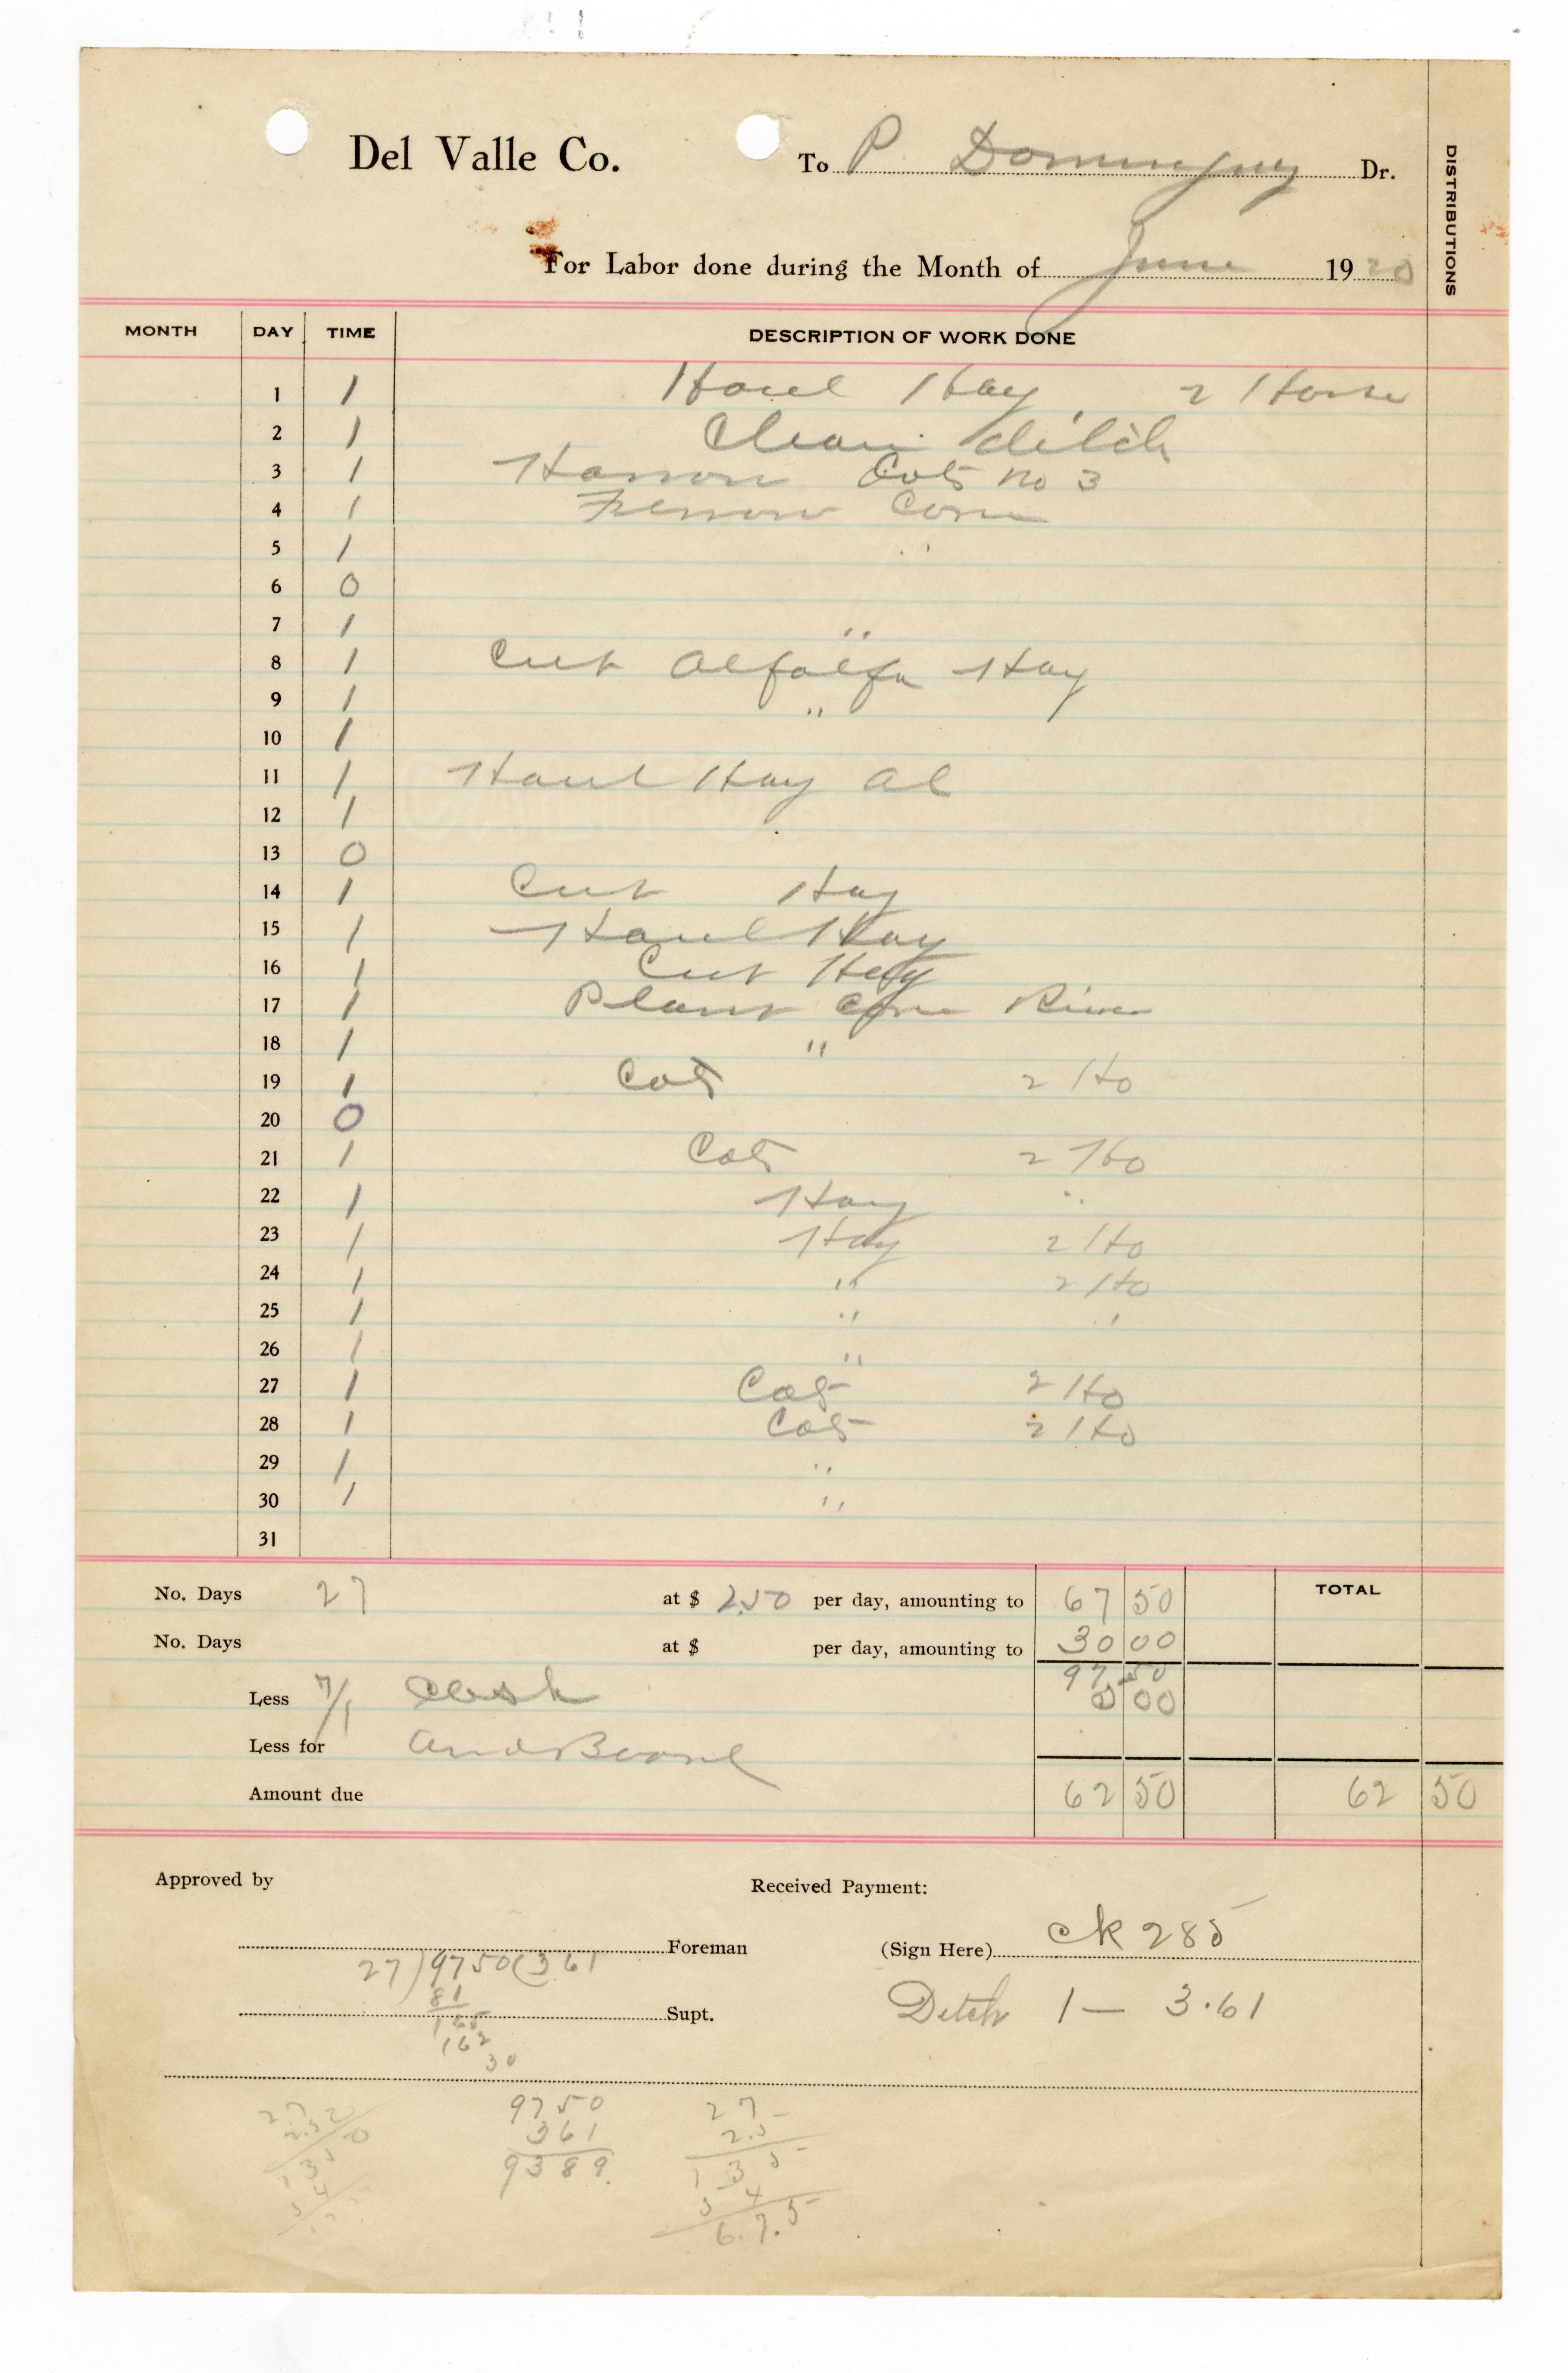 Del Valle Co. To P. Dominguez Dr.
DISTRIBUTIONS
For Labor done during the Month of June 1920
MONTH DAY TIME DESCRIPTION OF WORK DONE
1 1 Haul Hay 2 Horse
2 1 Clean ditch
3 1 Harrow Cots no 3
4 1 Furrow Corn
5 1 "
6 0
7 1 "
8 1 Cut Alfalfa Hay
9 1 "
10 1
11 1 Haul Hay al
12 1
13 0
14 1 Cut Hay
15 1 Haul Hay
16 1 Cut Hay
17 1 Plant Corn River
18 1 "
19 1 Cots 2 Ho
20 0
21 1 Cots 2 Ho
22 1 Hay "
23 1 Hay 2 Ho
24 1 " 2 Ho
25 1 " "
26 1 "
27 1 Cots 2 Ho
28 1 Cots 2 Ho
29 1 "
30 1 "
31
No. Days 27 at $ 2.50 per day, amounting to 67 50 TOTAL
No. Days at $ per day, amounting to 30 00
97 50
Less 7/1 Cash 00
Less for and Board
Amount due 62 50 62 50
Approved by Received Payment:
Foreman (Sign Here) ck 285
27)9750(361
81
Supt. Ditch 1 — 3.61
165
162
30
9750
361
9389
27
2.5
135
54
6.7.5